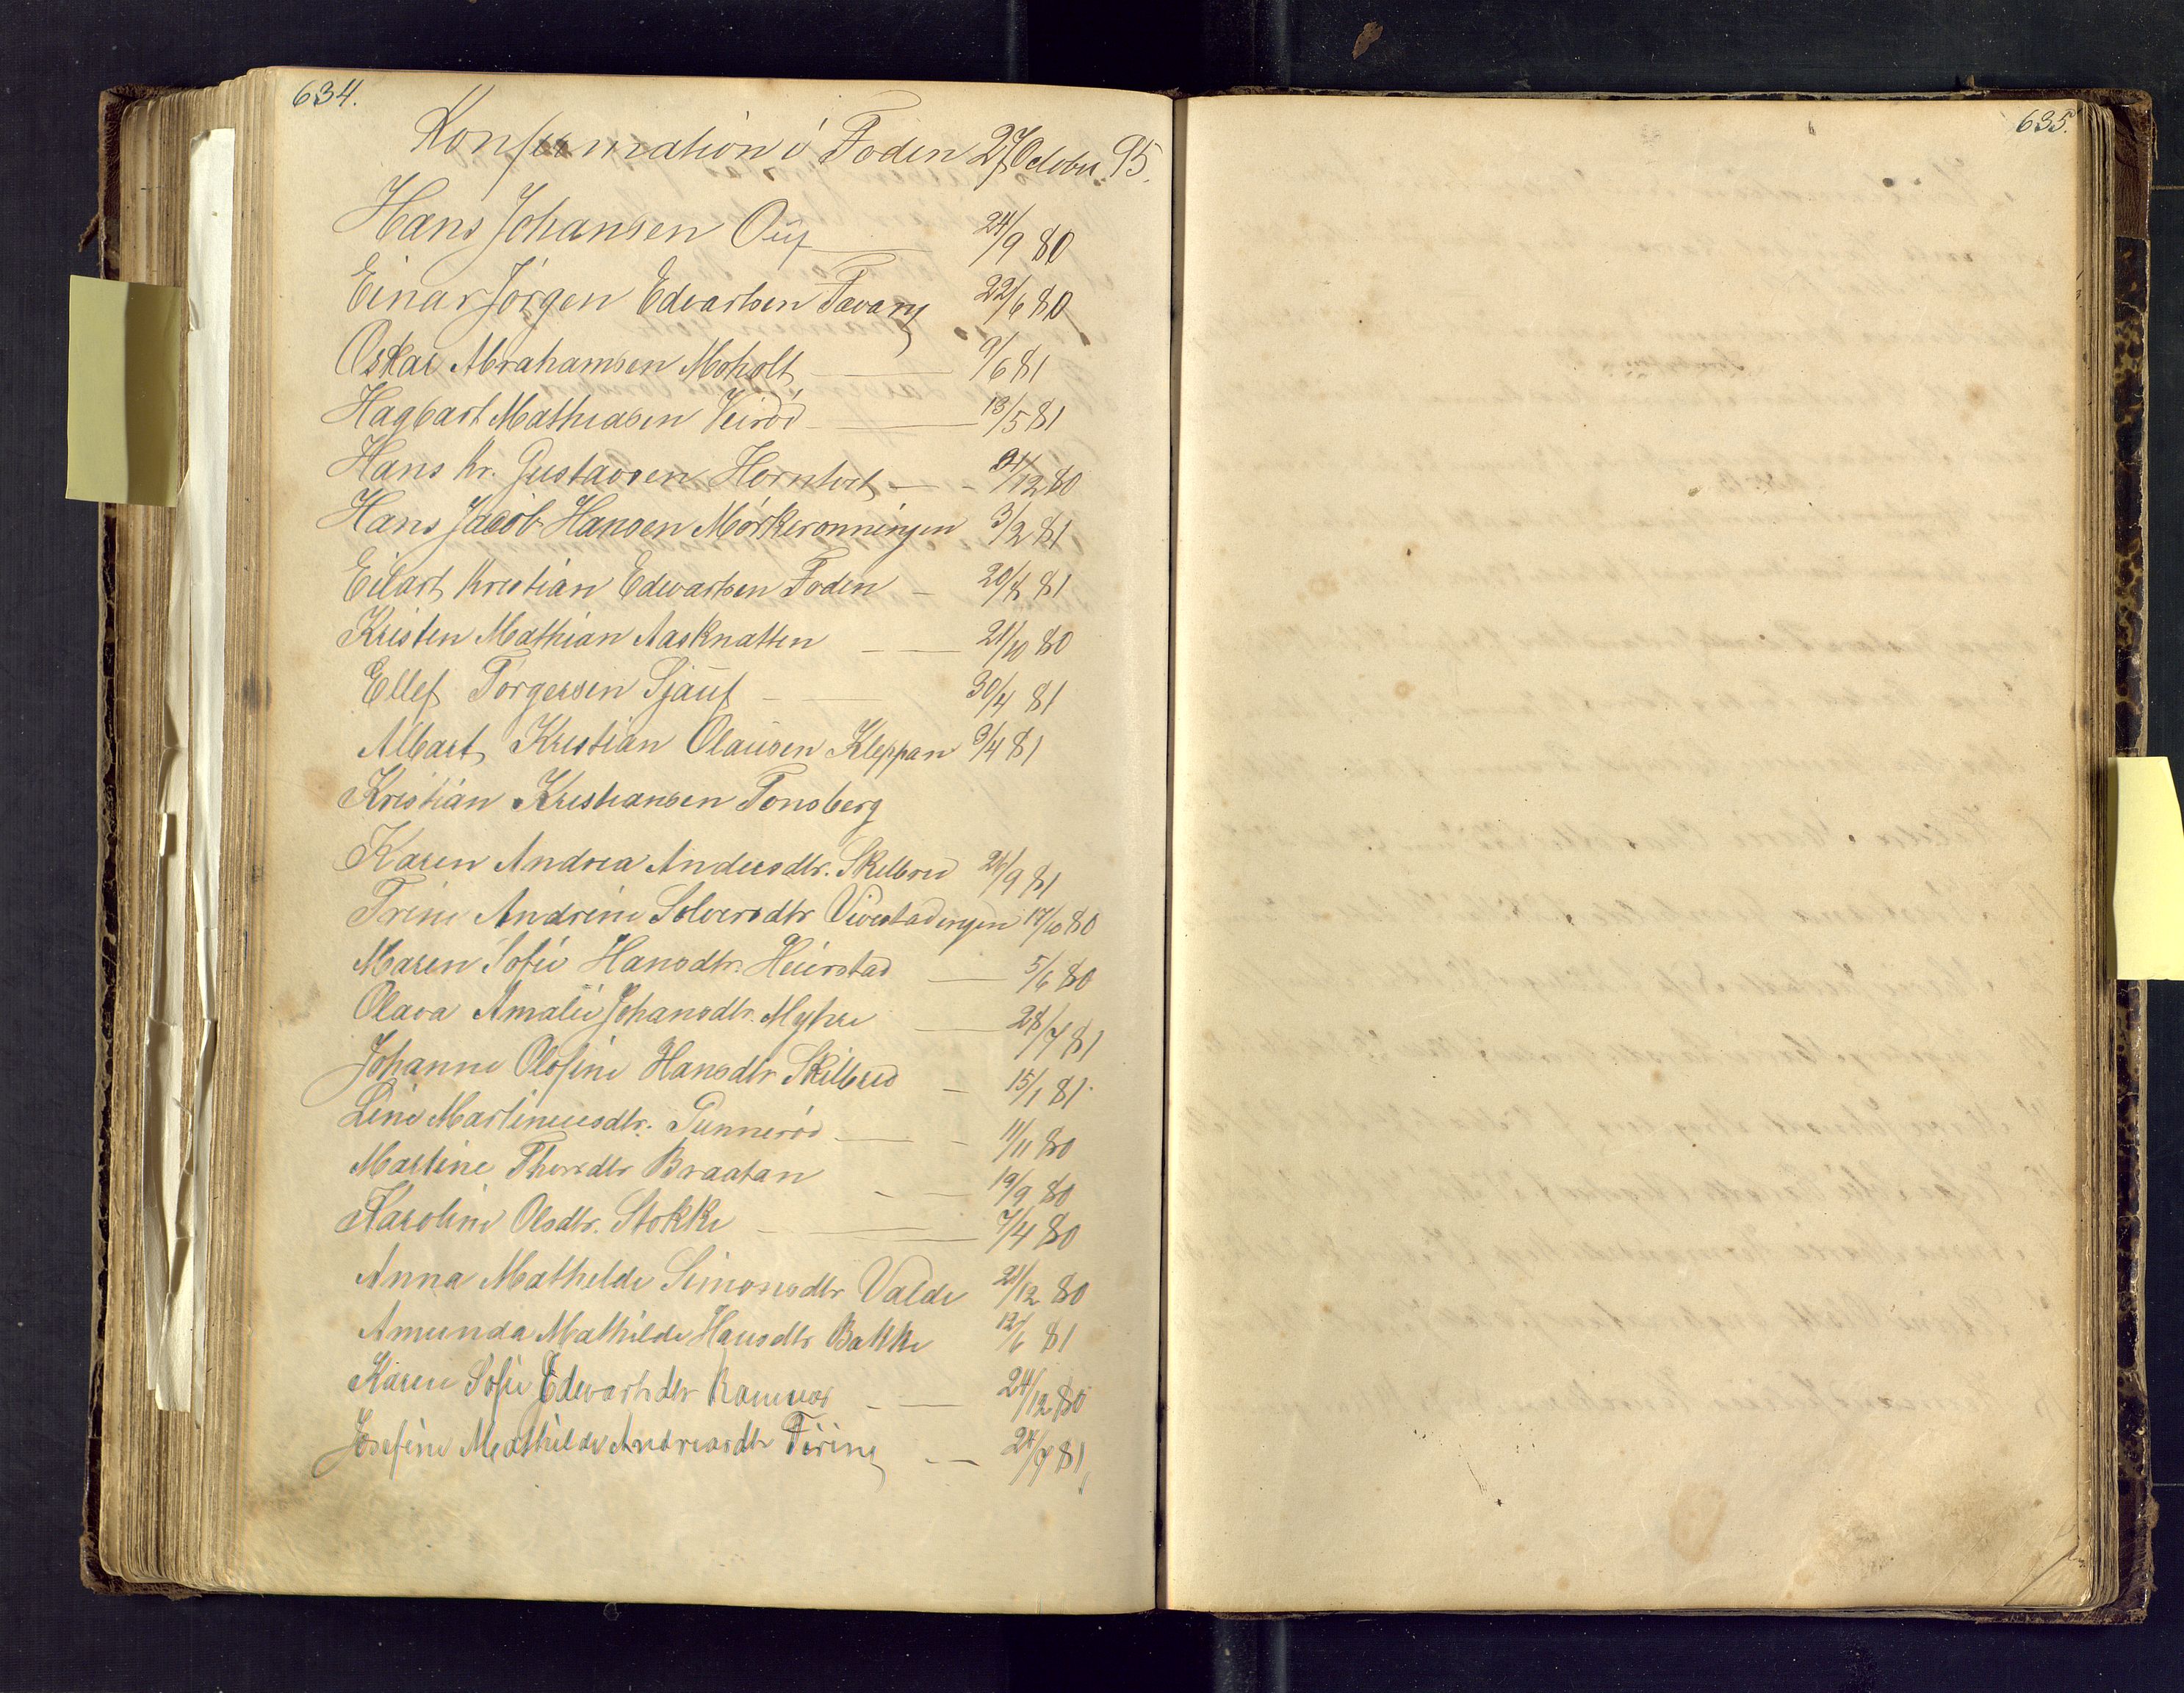 634.
Konfirmation i Foden 27 October 95.
Hans Johansen Ouf 24/9 80
Einar Jörgen Edvartsen Tavang 22/6 80
Oskar Abrahamsen Moholt 9/6 81
Hagbart Mathiasen Veiröd 13/5 81
Hans Kr. Gustavsen Horntvet 24/12 80
Hans Jacob Hansen Mörkeronningen 3/2 81
Eilart Kristian Edvartsen Foden 20/8 81
Kristen Mathian Aasknatten 21/10 80
Ellef Torgersen Sjauf 30/4 81
Albart Kristian Olausen Kleppan 3/4 81
Kristian Kristiansen Tonsberg
Karen Andrea Andersdtr. Skilbred 26/9 81
Trine Andrine Solversdtr Vivestadengen 17/10 80
Maren Sofie Hansdtr. Heierstad 5/6 80
Olava Amalie Johansdtr. Myhre 28/7 81
Johanne Olofine Hansdtr Skilbred 15/1 81.
Line Martineusdtr. Gunneröd 11/11 80
Martine Thorsdtr Braatan 19/9 80
Karoline Olsdtr. Stokke 7/4 80
Anna Mathilde Simonsdtr Valde 21/12 80
Amunda Mathilde Hansdtr Bakke 12/6 81
Karen Sofie Edvartsdtr 24/12 80
Josefine Mathilde Andreasdtr 24/9 81
635.